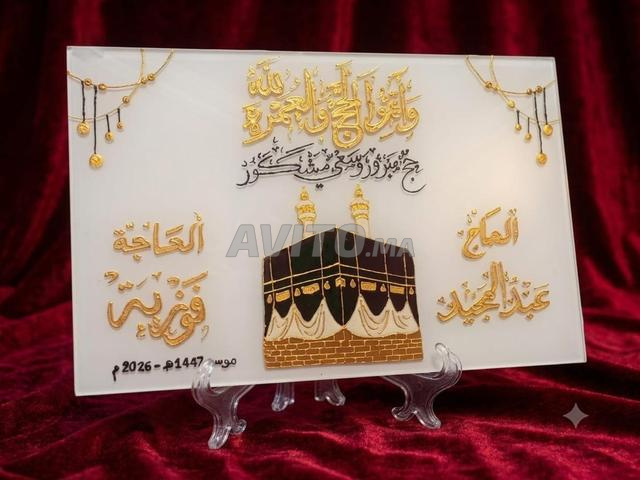 وأتموا الحج والعمرة لله
حج مبرور وسعي مشكور
الحاج
عبد المجيد
الحاجة
فوزية
موسم 1447هـ - 2026م
AVITO.MA